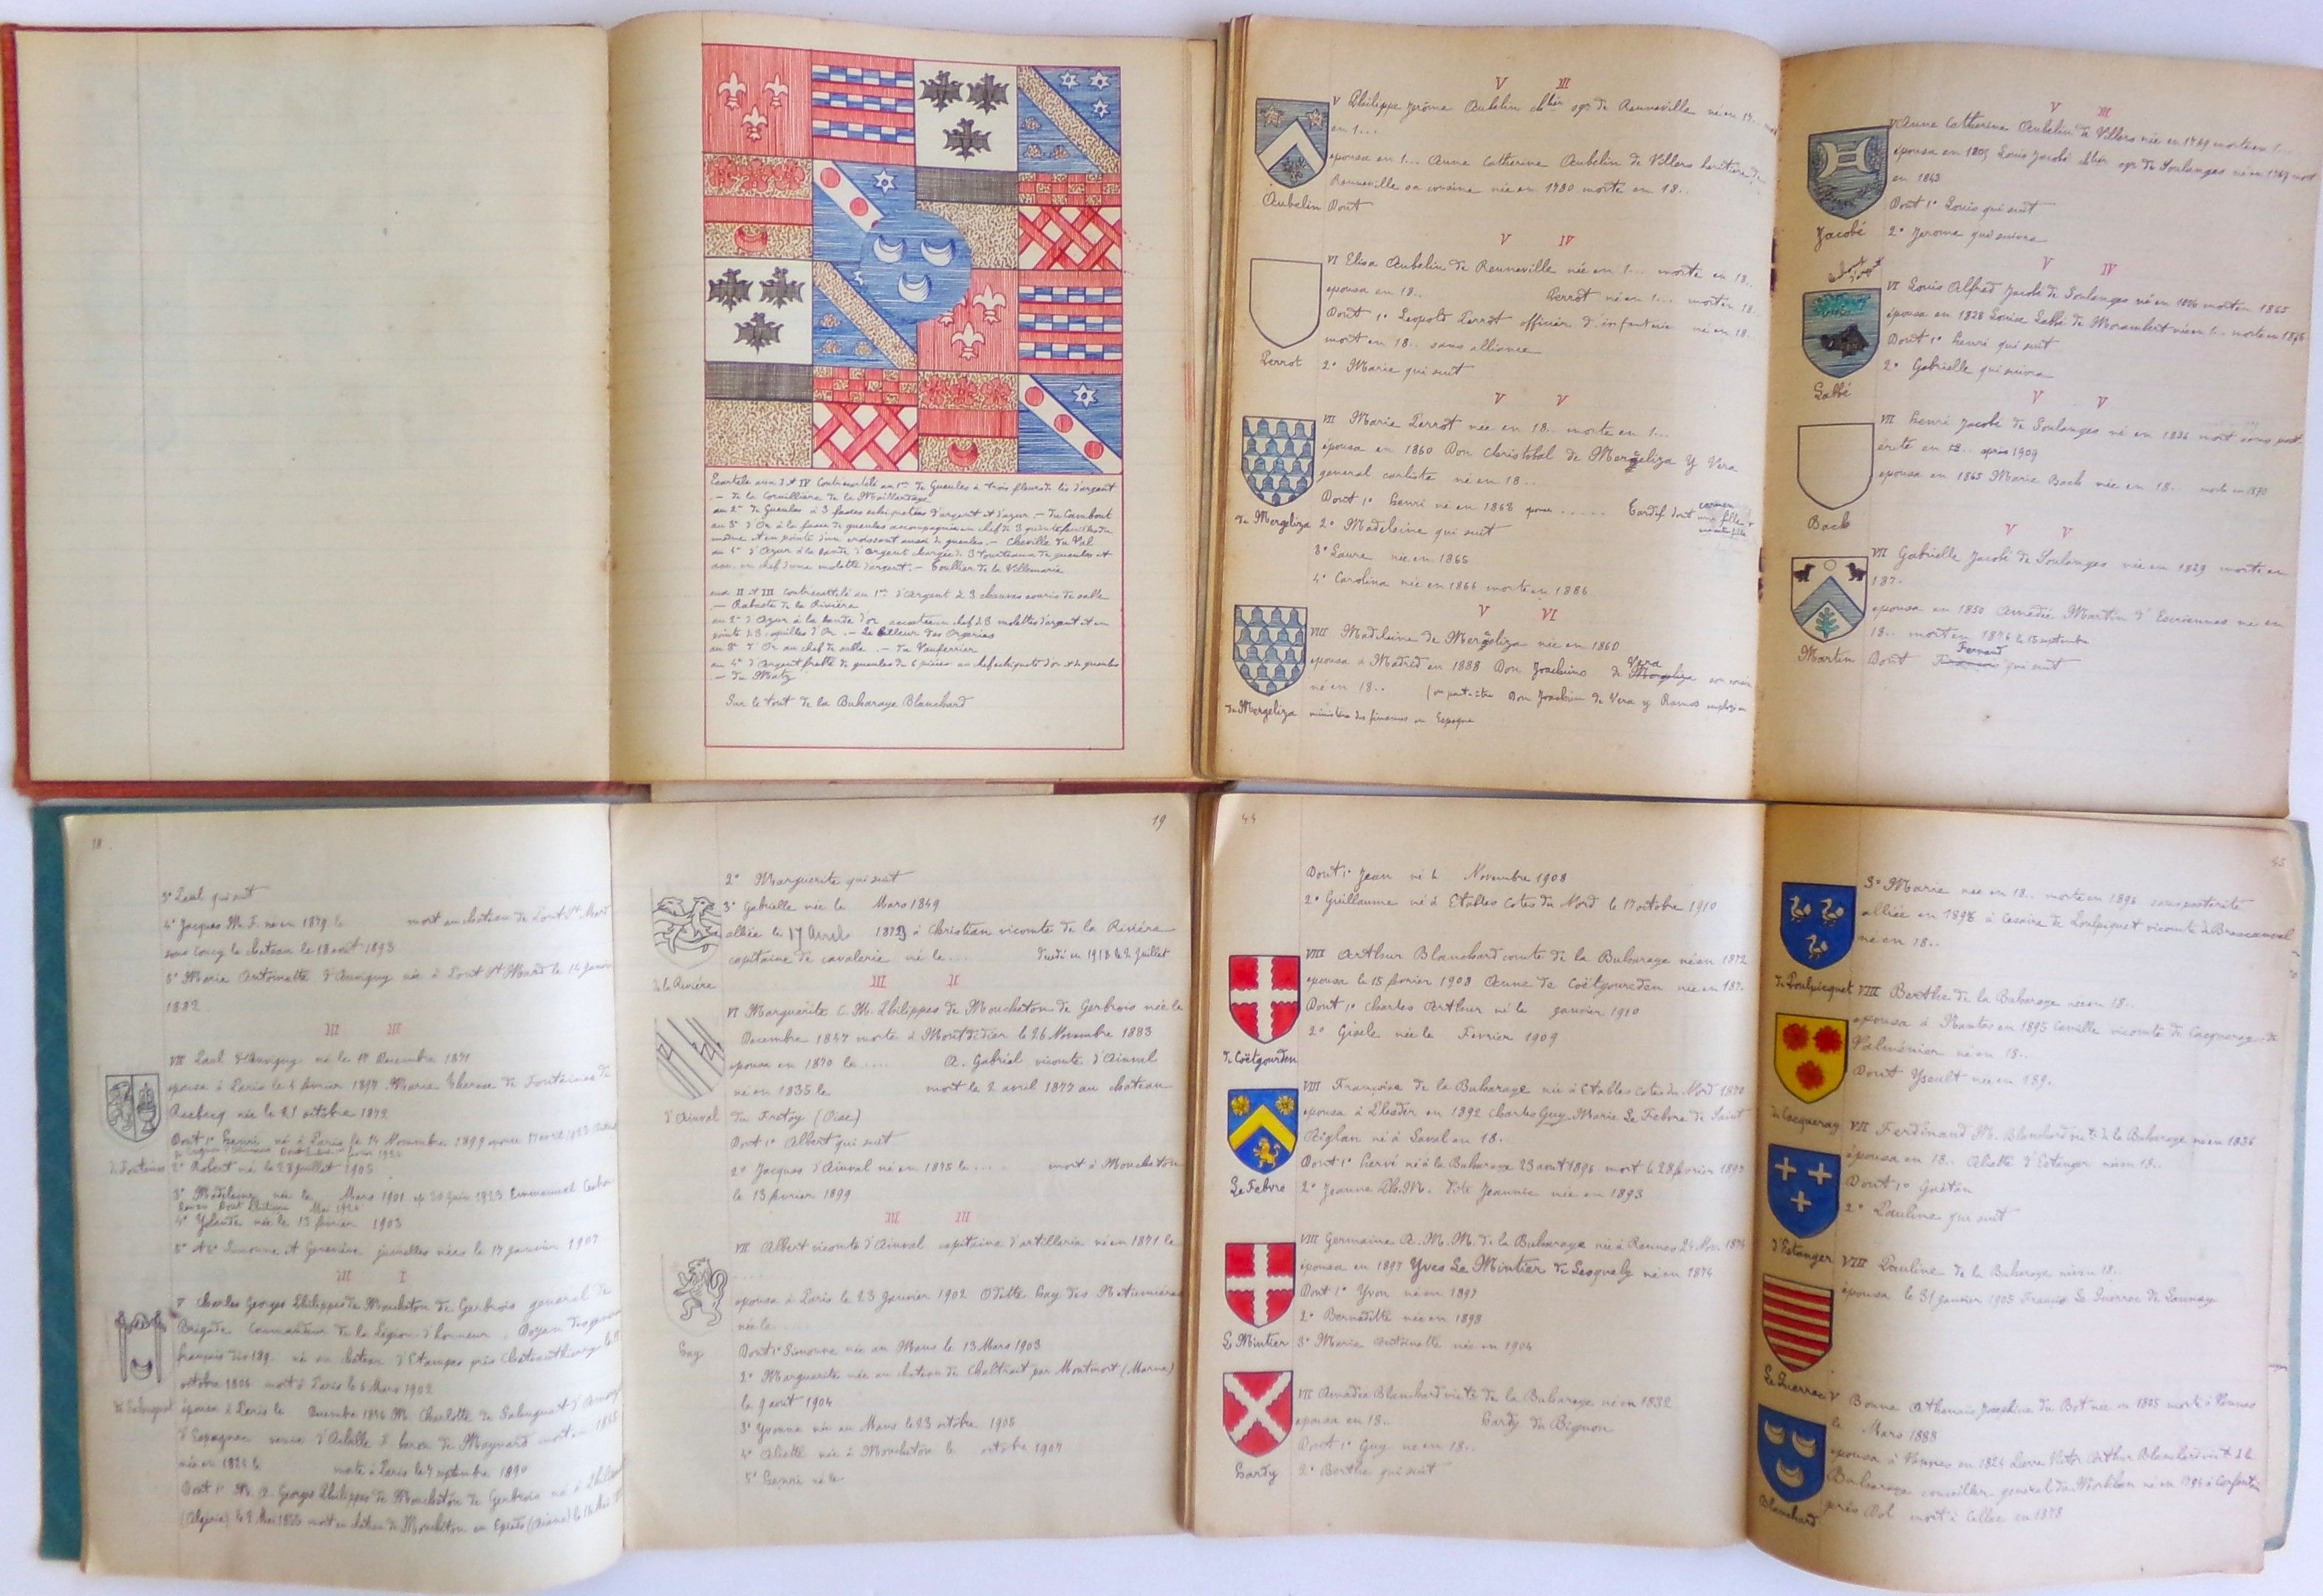 Ecartelé aux I et IV Contrecartelé au 1er de Gueules à trois fleurs de lis d'argent
— de la Cornillière de la Maillardaye
au 2e de Gueules à 3 fasces echiquetées d'argent et d'azur. — du Cambout
au 3e d'Or à la fasce de gueules accompagnée en chef de 3 quintefeuilles du
même et en pointe d'un croissant aussi de gueules. — Cheville du Val
au 4e d'Azur à la bande d'argent chargée de 3 tourteaux de gueules et
acc. en chef d'une molette d'argent. — Toullier de la Villemarie
aux II et III contrecartelé au 1er d'Argent à 3 chauves souris de sable
— Rabasté de la Rivière
au 2e d'Azur à la bande d'or en chef de 3 molettes d'argent et en
pointe de 3 coquilles d'Or. — Le des Orgeries
au 3e d'Or au chef de sable. — du Vauferrier
au 4e d'Argent fretté de gueules de 6 pièces au chef echiqueté d'or et de gueules
— du Matz
Sur le tout de la Buharaye Blanchard
V III
V Philippe Jérôme Aubelin sgr de Renneville né en 17..
en 1...
épousa en 1... Anne Catherine Aubelin de Villers héritière de
Renneville sa cousine née en 1780 morte en 18..
Aubelin Dont
V IV
VI Elisa Aubelin de Renneville née en 1... morte en 18..
épousa en 18.. Perrot né en 1... mort en 18..
Dont 1° Leopold Perrot officier d'infanterie né en 18.
mort en 18.. sans alliance
Perrot 2° Marie qui suit
V V
VII Marie Perrot née en 18.. morte en 1...
épousa en 1860 Don Christobal de Mergeliza Y Vera
general carliste né en 18...
Dont 1° henri né en 1863 epouse ...... Tardif dont
de Mergeliza 2° Madeleine qui suit
3° Laure née en 1865
4° Carolina née en 1866 morte en 1886
V VI
VIII Madeleine de Mergeliza née en 1860
épousa à Madrid en 1888 Don Joachimo de Vera son cousin
né en 18.. (ou peut-être Don Joachim de Vera y Ramos
de Mergeliza ministère des finances en Espagne
V III
VI Anne Catherine Aubelin de Villers née en 1769 morte en 1...
épousa en 1805 Louis Jacobé sgr de Soulanges né en 1769 mort
en 1843
Dont 1° Louis qui suit
Jacobé 2° Jerome qui suivra
V IV
VI Louis Alfred Jacobé de Soulanges né en 1806 mort en 1865
épousa en 1828 Louise Labbé de Morambert née en 1... morte en 1876
Dont 1° henri qui suit
Labbé 2° Gabrielle qui suivra
V V
VII henri Jacobé de Soulanges né en 1836 mort sans post
érité en après 1909
épousa en 1865 Marie Back née en 18... morte en 1870
Back
V V
VII Gabrielle Jacobé de Soulanges née en 1829 morte en
187.
épousa en 1850 Amédée Martin d'Escriennes né en
18.. mort en 1876 le 15 septembre
Martin Dont Fernand qui suit
18
3° Paul qui suit
4° Jacques M. F. né en 1879 le mort au château de Pont St Mard
sous Coucy le chateau le 18 août 1893
5° Marie Antoinette d'Auvigny née à Pont St Mard le 14 Janvier
1882
III III
VII Paul d'Auvigny né le 17 Decembre 1871
épousa à Paris le 6 février 1897 Marie Therese de Fontaines de
Resbecq née le 21 octobre 1872
Dont 1° henri né à Paris le 14 Novembre 1899
de Fontaines 2° Robert né le 28 juillet 1905
3° Madeleine née le Mars 1901 ep 20 juin 1923 Emmanuel
Dont Philippe Mai 1924
4° Yolande née le 15 février 1903
5° et 6° Simonne et Geneviève jumelles nées le 17 janvier 1907
III I
V Charles Georges Philippes de Moucheton de Gerbrois general de
Brigade Commandeur de la Légion d'honneur, Doyen des
français dès 189. né au château d'Etampes près Chateauthierry le
octobre 1806 mort à Paris le 6 Mars 1902
de Saluguet épousa à Paris le Decembre 1846 M. Charlotte de
d'Espagnac veuve d'Achille baron de Maynard
née en 1824 le morte à Paris le 7 septembre 1890
Dont 1° M. A. Georges Philippes de Moucheton de Gerbrois né à
(Algérie) le 2 Mai 1855 mort au château de Moucheton en Epieds (Aisne) le
19
2° Marguerite qui suit
3° Gabrielle née le Mars 1849
alliée le 17 Avril 1873 à Christian vicomte de la Rivière
capitaine de cavalerie né le .... 1918 le 2 Juillet
de la Rivière
III II
VI Marguerite C. M. Philippes de Moucheton de Gerbrois née le
Decembre 1847 morte à Montdidier le 26 Novembre 1883
épousa en 1870 le .... A. Gabriel vicomte d'Ainval
né en 1835 le mort le 2 avril 1877 au château
d'Ainval du Fretoy (Oise)
Dont 1° Albert qui suit
2° Jacques d'Ainval né en 1875 le ... mort à Moucheton
le 13 février 1899
III III
VII Albert vicomte d'Ainval capitaine d'artillerie né en 1871 le
....
épousa à Paris le 23 Janvier 1902 Odette Hay des Netumières
née le ....
Hay Dont 1° Simonne née au Mans le 13 Mars 1903
2° Marguerite née au chateau de Chaltrait par Montmort (Marne)
le 9 aout 1904
3° Yvonne née au Mans le 23 octobre 1905
4° Aliette née à Moucheton le octobre 1907
5° Henri né le
44
Dont 1° Jean né le Novembre 1908
2° Guillaume né à Etables Cotes du Nord le 17 octobre 1910
VIII Arthur Blanchard comte de la Buharaye né en 1872
épousa le 15 fevrier 1909 Anne de Coëtgourden née en 187.
Dont 1° Charles Arthur né le janvier 1910
2° Gisele née le Fevrier 1909
de Coëtgourden
VIII Françoise de la Buharaye née à Etables Cotes du Nord 1870
épousa à Plesder en 1892 Charles Guy Marie Le Febvre de Saint
Aiglan né à Laval en 18.
Dont 1° hervé né à la Buharaye 23 aout 1896 mort le 28 fevrier 1897
Le Febvre 2° Jeanne Th. M. dite Jeannie née en 1893
VIII Germaine A. M. M. de la Buharaye née à Rennes 24 Nov. 1874
épousa en 1897 Yves Le Mintier de Lesquely né en 1874
Dont 1° Yvon né en 1897
2° Bernadette née en 1898
Le Mintier 3° Marie Antoinette née en 1904
VII Amadis Blanchard vicomte de la Buharaye né en 1832
épousa en 18.. hardy du Bignon
Dont 1° Guy né en 18..
hardy 2° Berthe qui suit
45
3° Marie née en 18.. morte en 1896 sans postérité
alliée en 1895 à Césaire de Poulpiquet vicomte de Brescanvel
né en 18..
de Poulpiquet VIII Berthe de la Buharaye née en 18..
épousa à Nantes en 1895 Camille vicomte de Cacqueray de
Valménier né en 18..
Dont Yseult née en 189.
de Cacqueray VII Ferdinand M. Blanchard vicomte de la Buharaye né en 1836
épousa en 18.. Aliette d'Estanger née en 18..
Dont 1° Gaëtan
2° Pauline qui suit
d'Estanger VIII Pauline de la Buharaye née en 18..
épousa le 31 janvier 1905 François Le Guerrec de Launay
Le Guerrec V Bonne Athenais Josephine du Bot née en 1805 morte à Vannes
le Mars 1888
épousa à Vannes en 1824 Pierre Victor Arthur Blanchard vicomte de la
Buharaye conseiller general du Morbihan né en 1796 à Carfantin
Blanchard près Dol mort à Callac en 1878